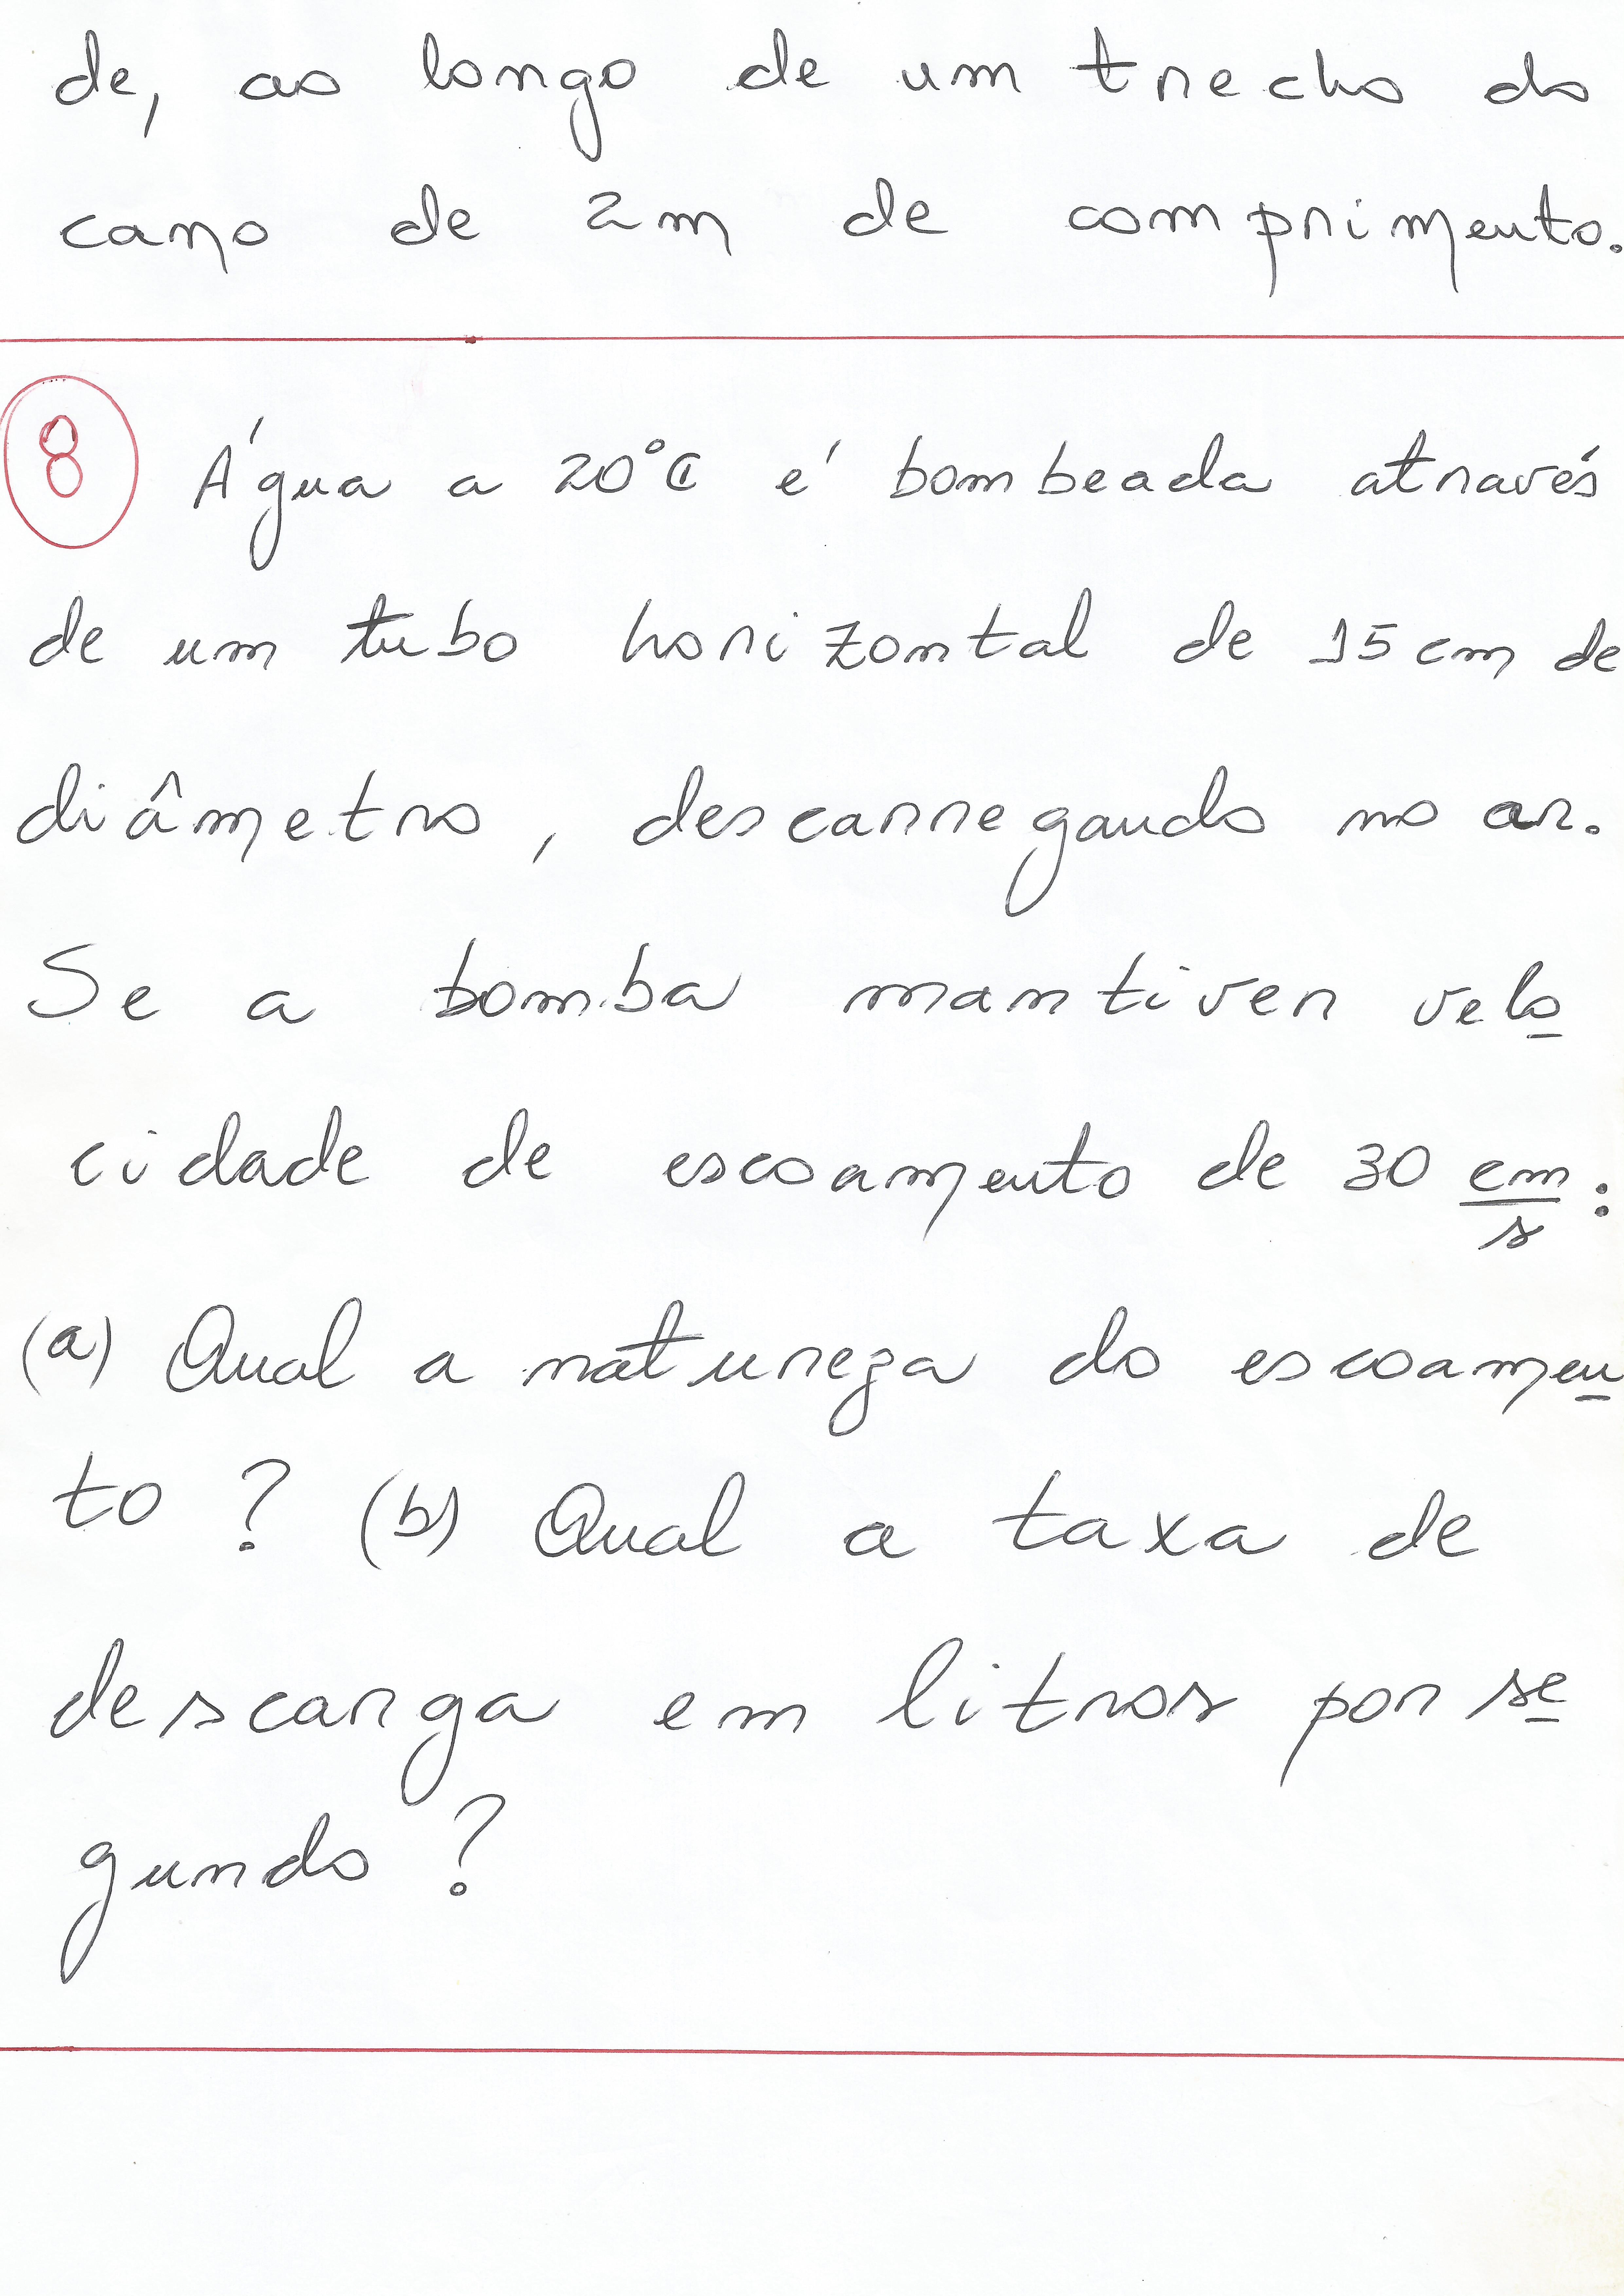 de, ao longo de um trecho do
cano de 2m de comprimento.
8 Água a 20°C é bombeada através
de um tubo horizontal de 15 cm de
diâmetro, descarregando no ar.
Se a bomba mantiver velo
cidade de escoamento de 30 cm/s:
(a) Qual a natureza do escoamen
to? (b) Qual a taxa de
descarga em litros por se
gundo?